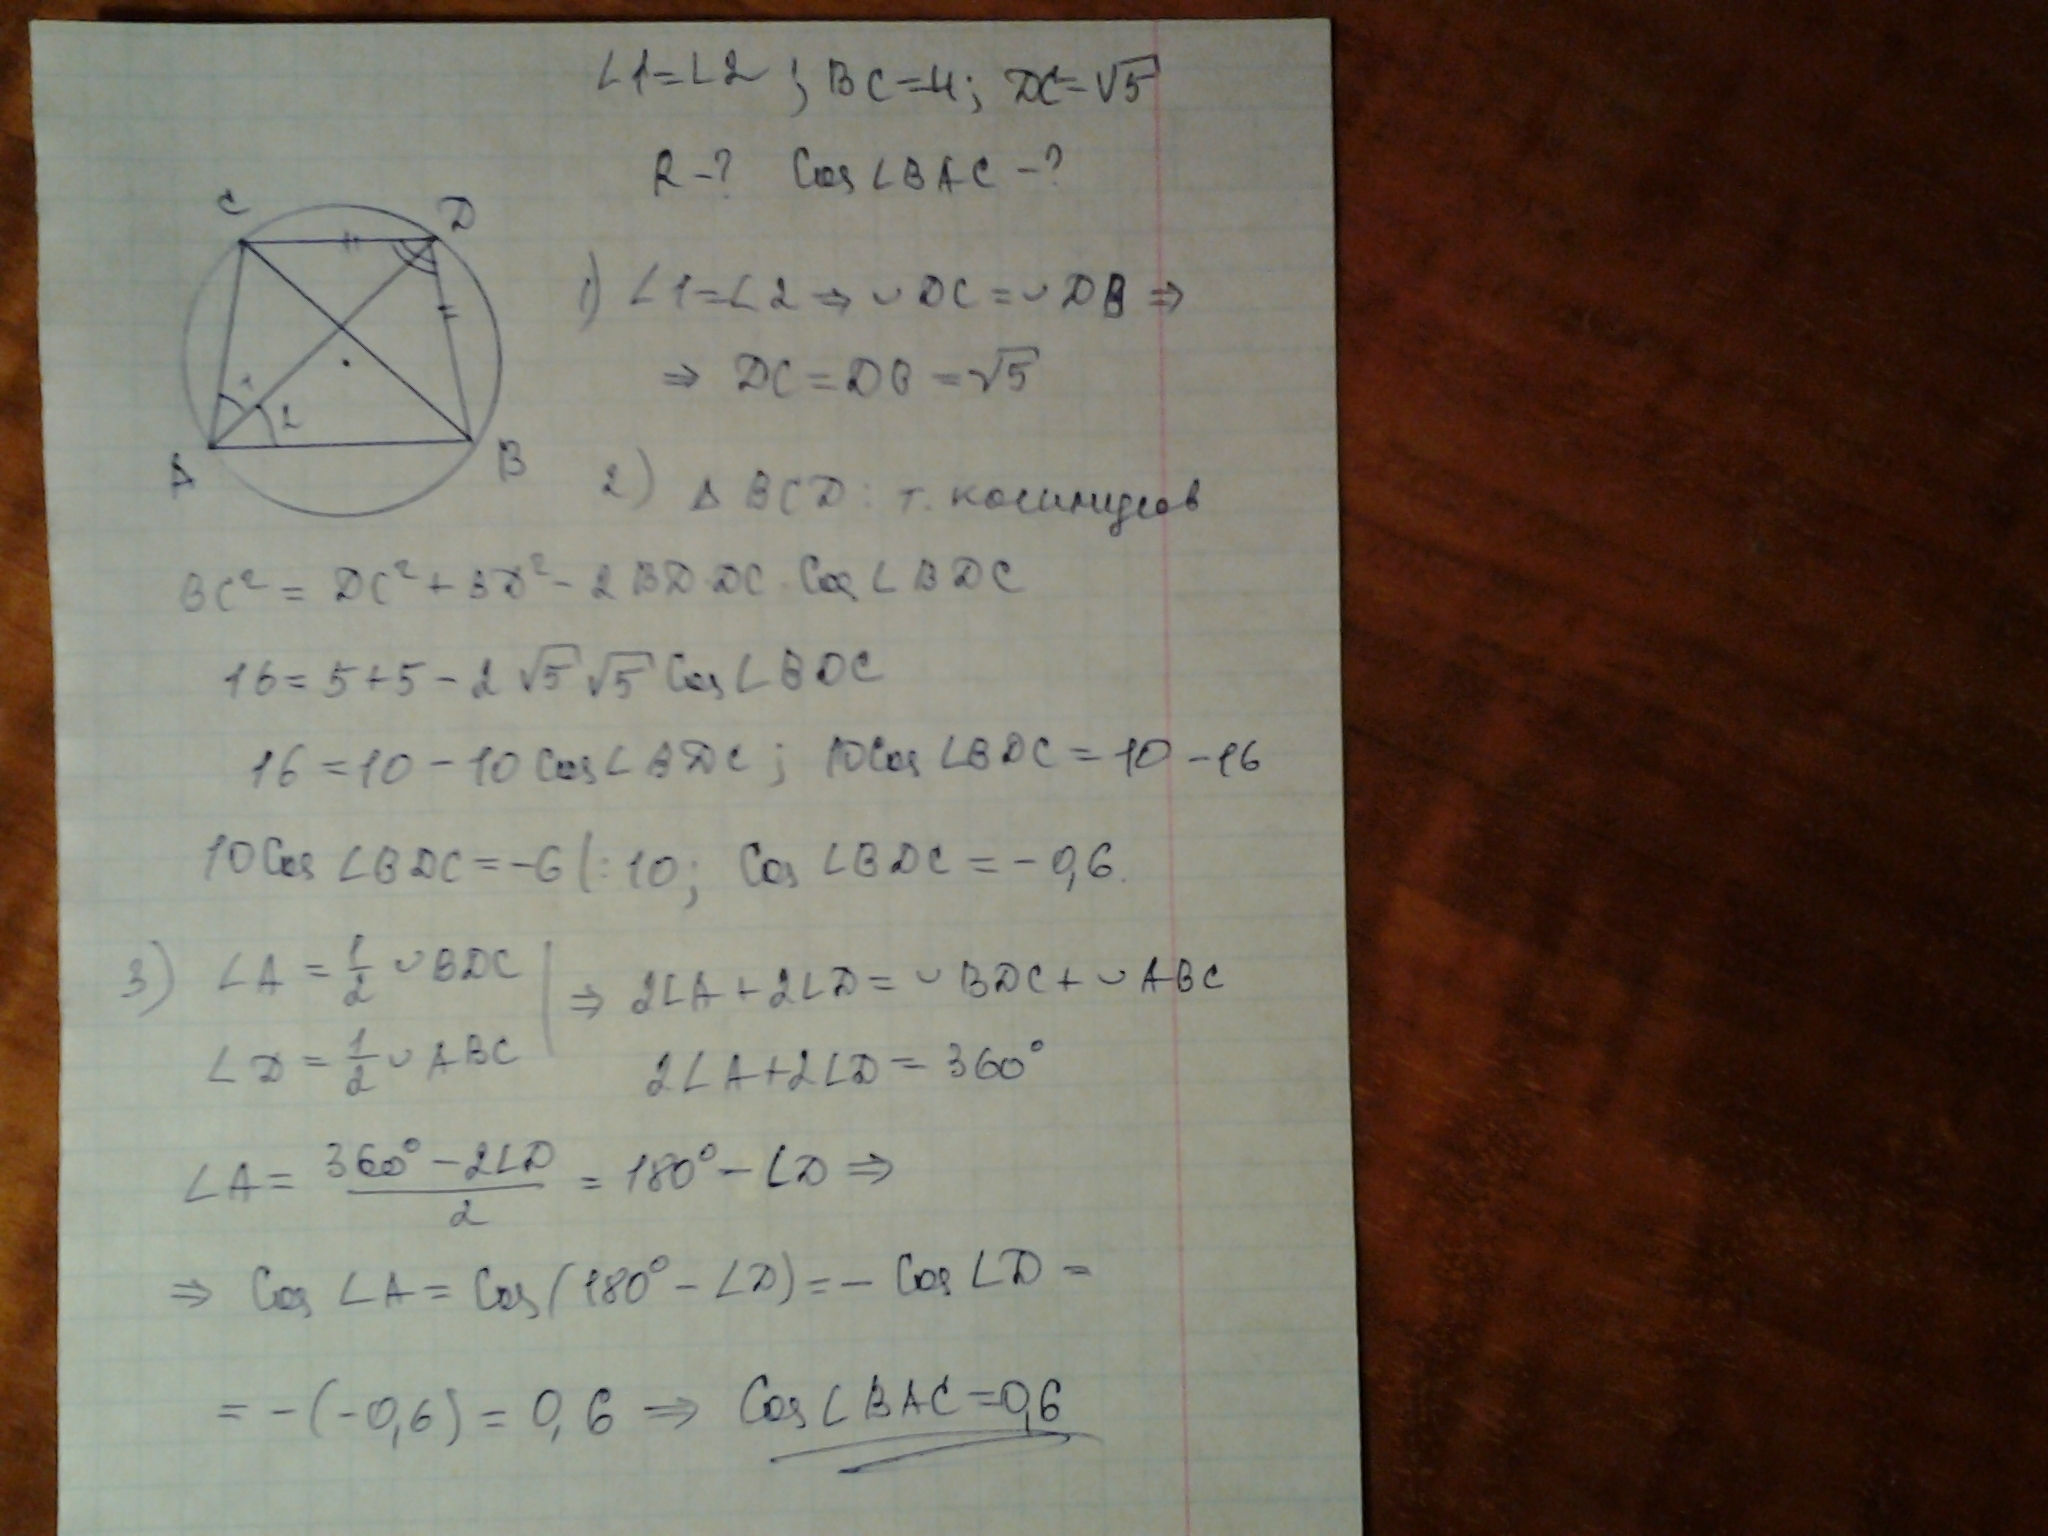 ∠1=∠2 ; BC=4; DC=√5
R-? Cos∠BAC-?
C D
1 2
A B
1) ∠1=∠2 ⇒ ◡DC=◡DB ⇒
⇒ DC=DB=√5
2) Δ BCD: т. косинусов
BC² = DC²+BD²-2BD·DC·Cos∠BDC
16=5+5-2√5√5 Cos∠BDC
16=10-10Cos∠BDC; 10Cos∠BDC=10-16
10Cos∠BDC=-6 |:10; Cos∠BDC=-0,6.
3) ∠A=1/2 ◡BDC | ⇒ 2∠A+2∠D=◡BDC+◡ABC
∠D=1/2 ◡ABC 2∠A+2∠D=360°
∠A=(360°-2∠D)/2=180°-∠D ⇒
⇒ Cos∠A=Cos(180°-∠D)=-Cos∠D=
=-(-0,6)=0,6 ⇒ Cos∠BAC=0,6